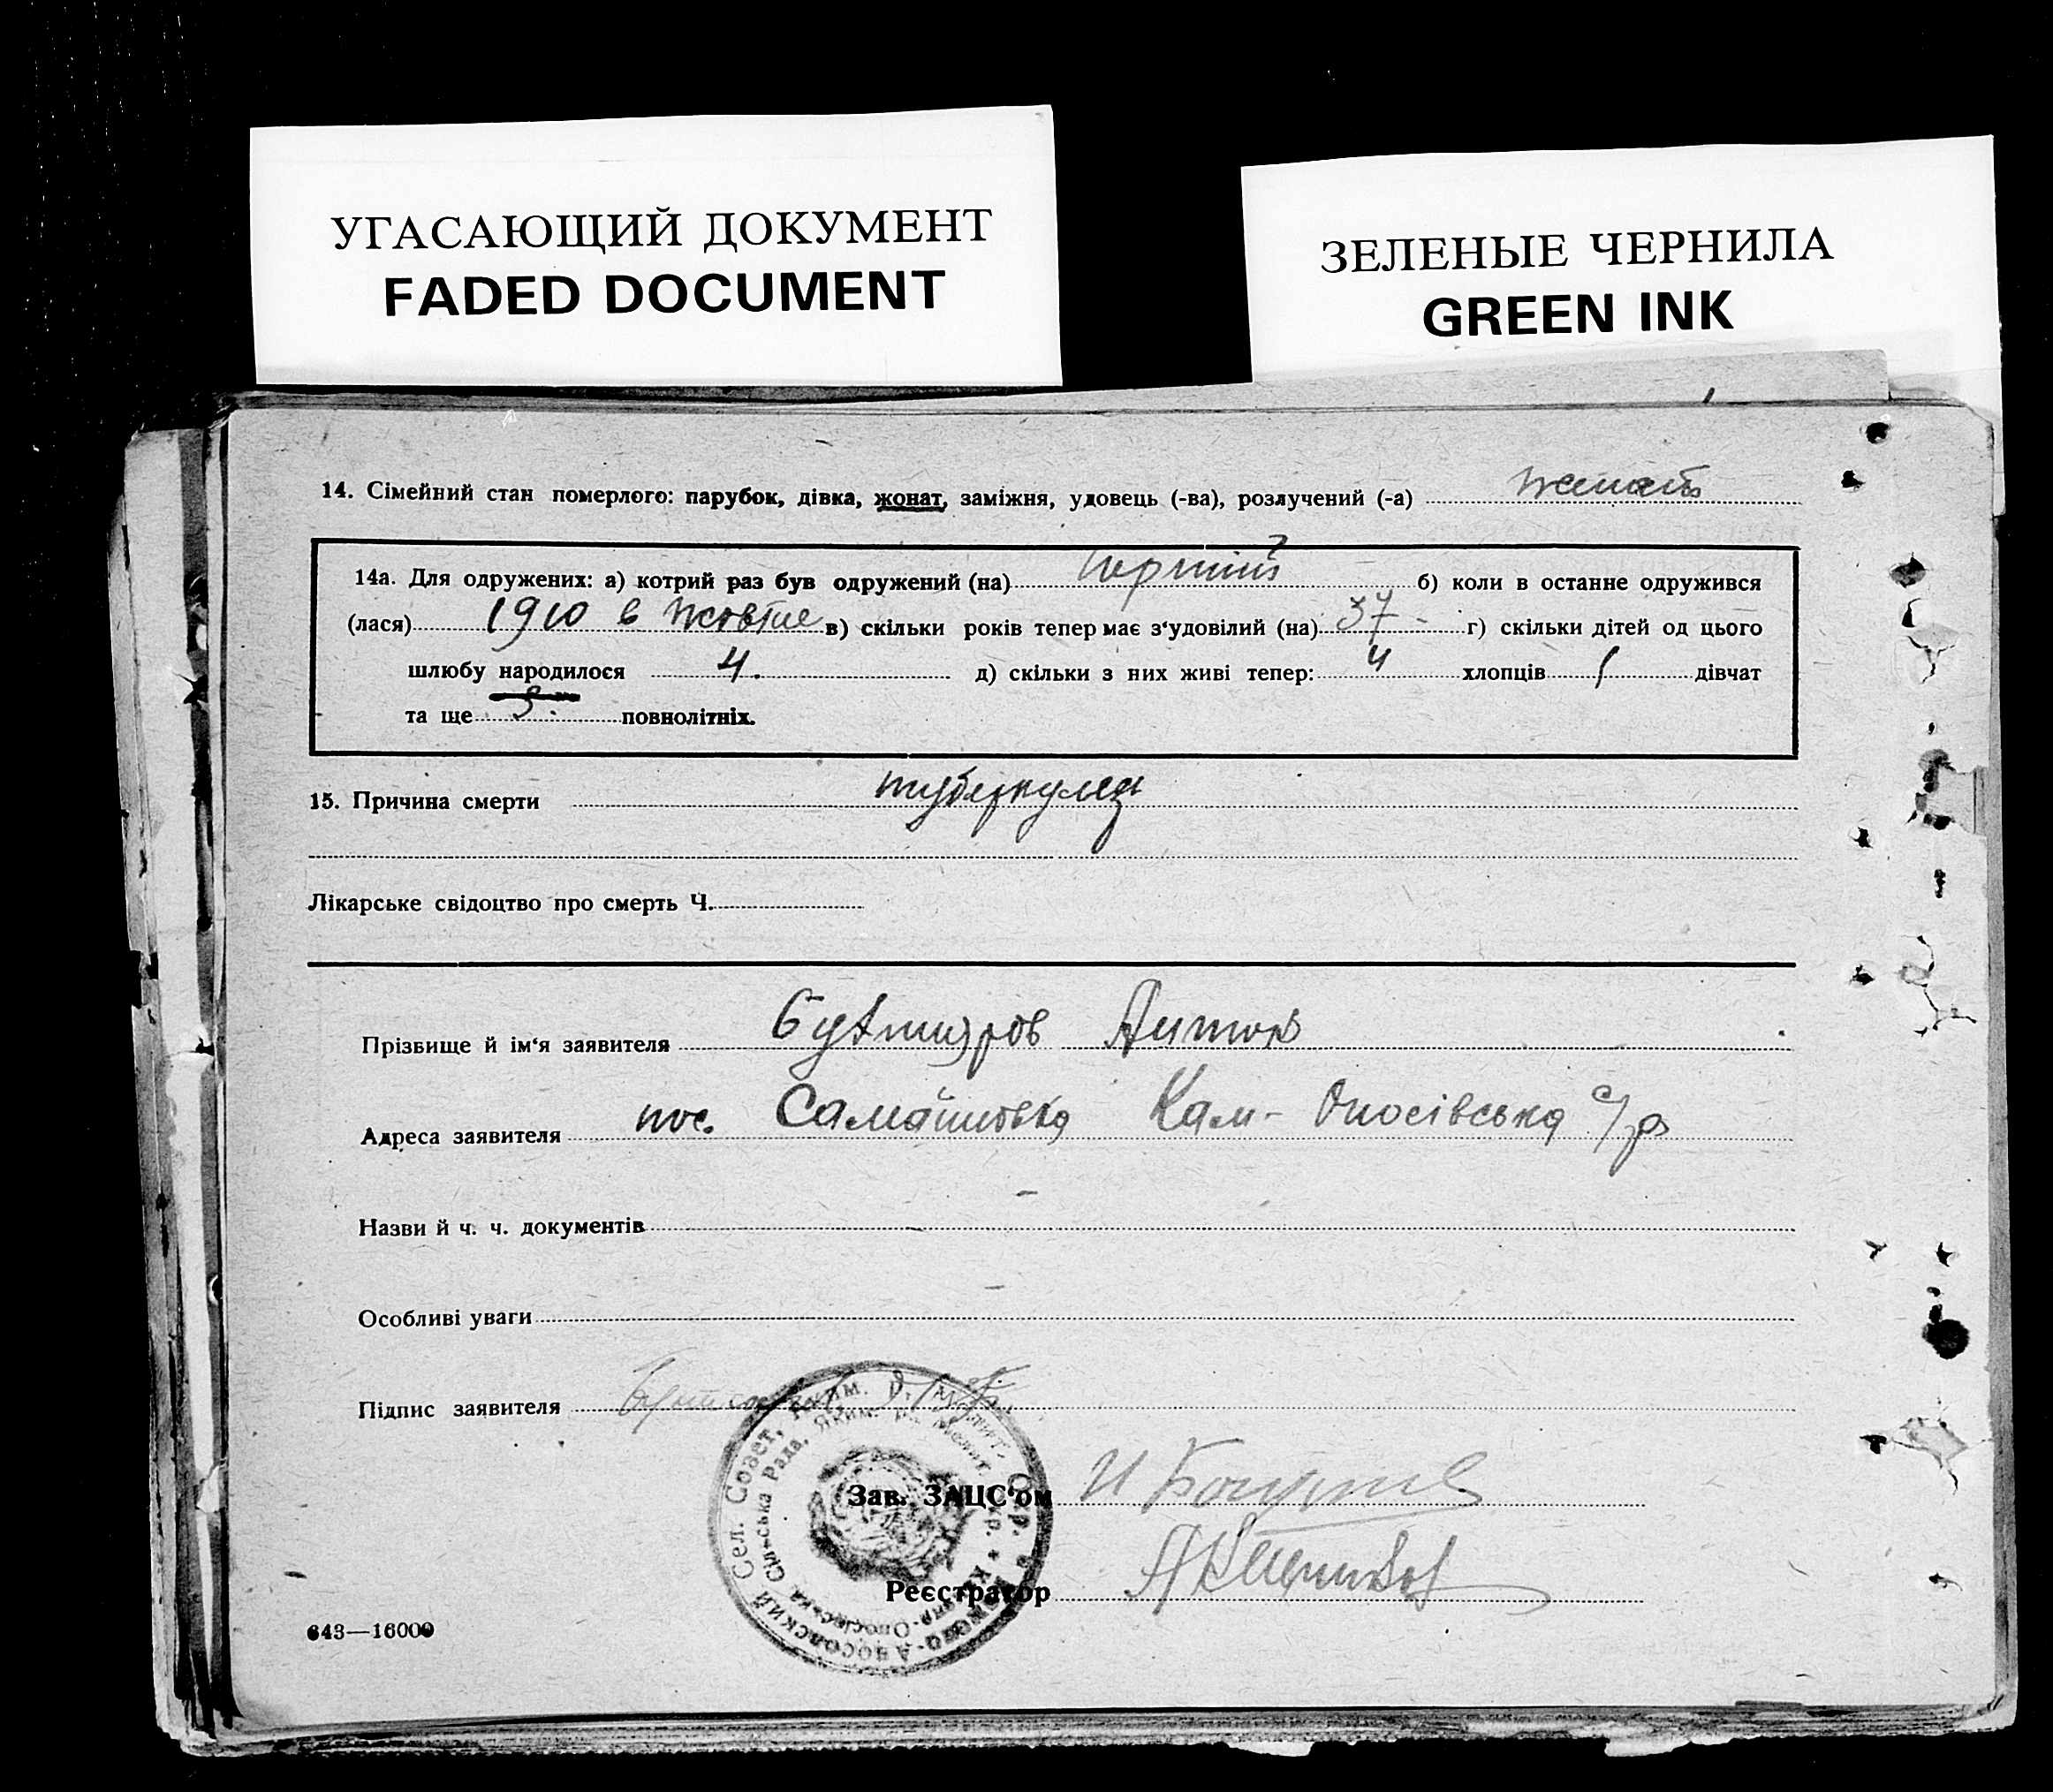 УГАСАЮЩИЙ ДОКУМЕНТ
FADED DOCUMENT
ЗЕЛЕНЫЕ ЧЕРНИЛА
GREEN INK
14. Сімейний стан померлого: парубок, дівка, жонат, заміжня, удовець (-ва), розлучений (-а) женат
14а. Для одружених: а) котрий раз був одружений (на) б) коли в останне одружився
(лася) 1910 в жовтне в) скільки років тепер має з'удовілий (на) 37 г) скільки дітей од цього
шлюбу народилося 4. д) скільки з них живі тепер: 4 хлопців 1 дівчат
та ще 3. повнолітніх.
15. Причина смерти туберкулез
Лікарське свідоцтво про смерть Ч.
Прізвище й ім'я заявителя Антон
Адреса заявителя пос. Кам- Оносівська с/р
Назви й ч. ч. документів
Особливі уваги
Підпис заявителя
Зав. ЗАЦС'ом
Реєстратор
643—16000